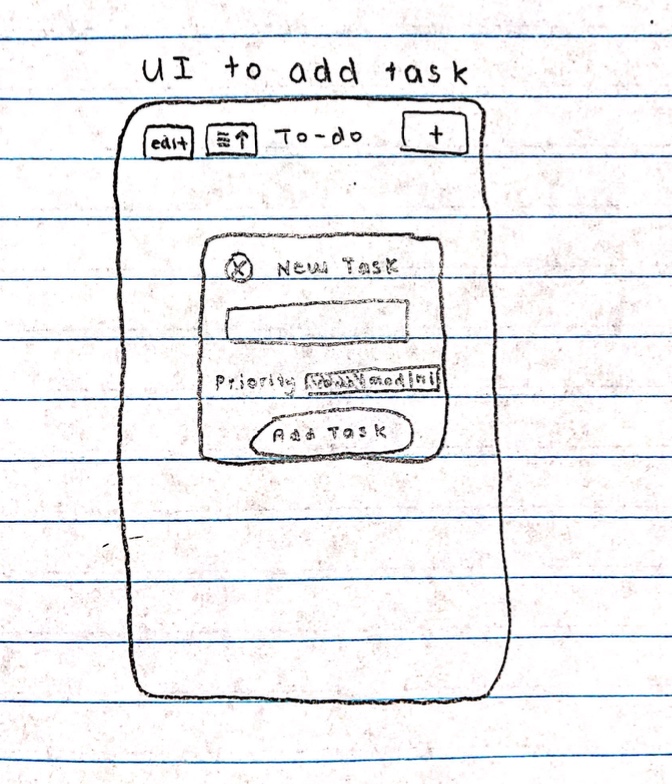 UI to add task
edit To-do +
New Task
Priority med
Add Task